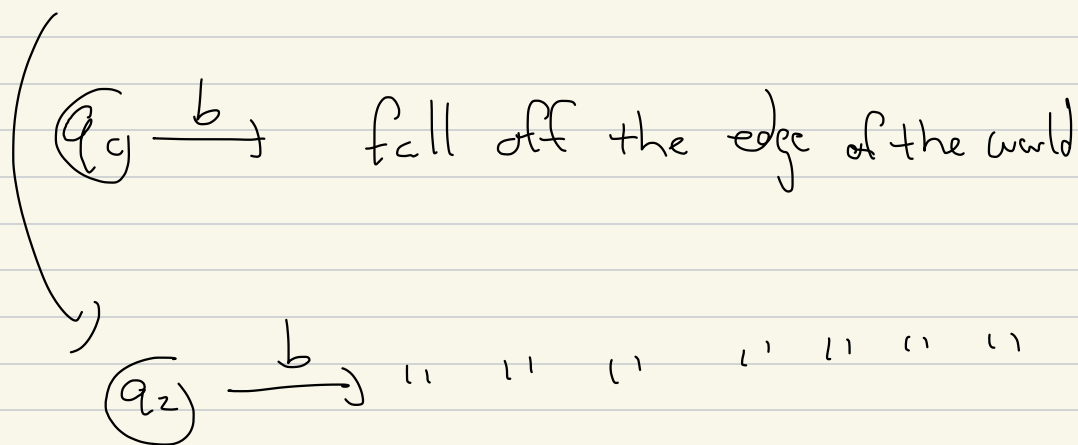 b
q₁ → fall off the edge of the world
b
q₂ → " " " " " " "